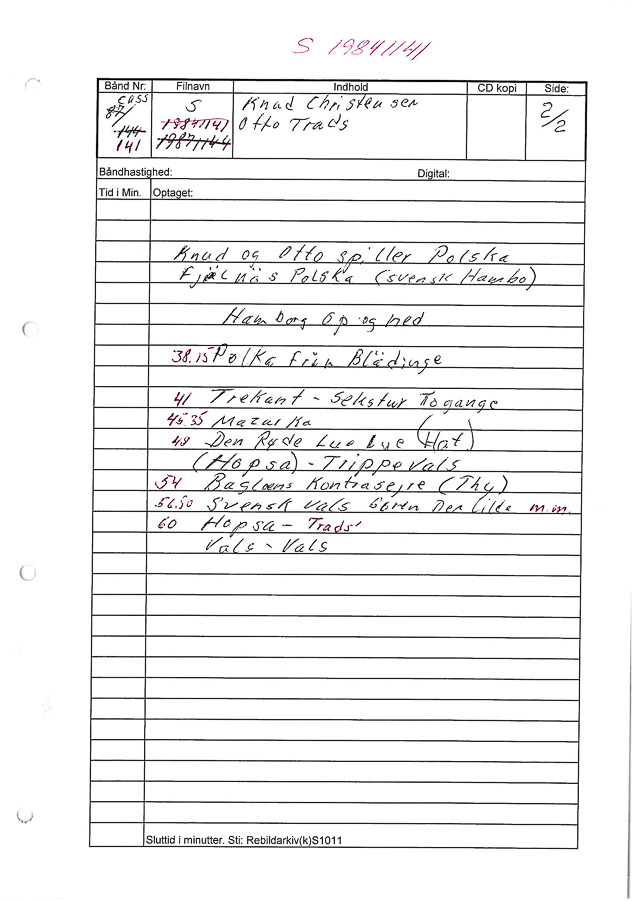 S 19841141
Bånd Nr: Filnavn Indhold CD kopi Side:
cass S Knud Christensen 2/2
87/ 19871141 Otto Trads
144 19871144
141
Båndhastighed: Digital:
Tid i Min. Optaget:
Knud og Otto spiller Polska
Fjælnäs Polska (svensk Hambo)
Hamborg op og ned
38.15 Polka från Blädinge
41 Trekant - Sekstur Togange
45.35 Mazurka
48 Den Røde Lue Lue (Hat)
(Hopsa) - Trippevals
54 Baglæns Kontrasejre (Thy)
56.50 Svensk Vals Gören Den Lilla m.m.
60 Hopsa - Trads'
Vals - Vals
Sluttid i minutter. Sti: Rebildarkiv(k)S1011